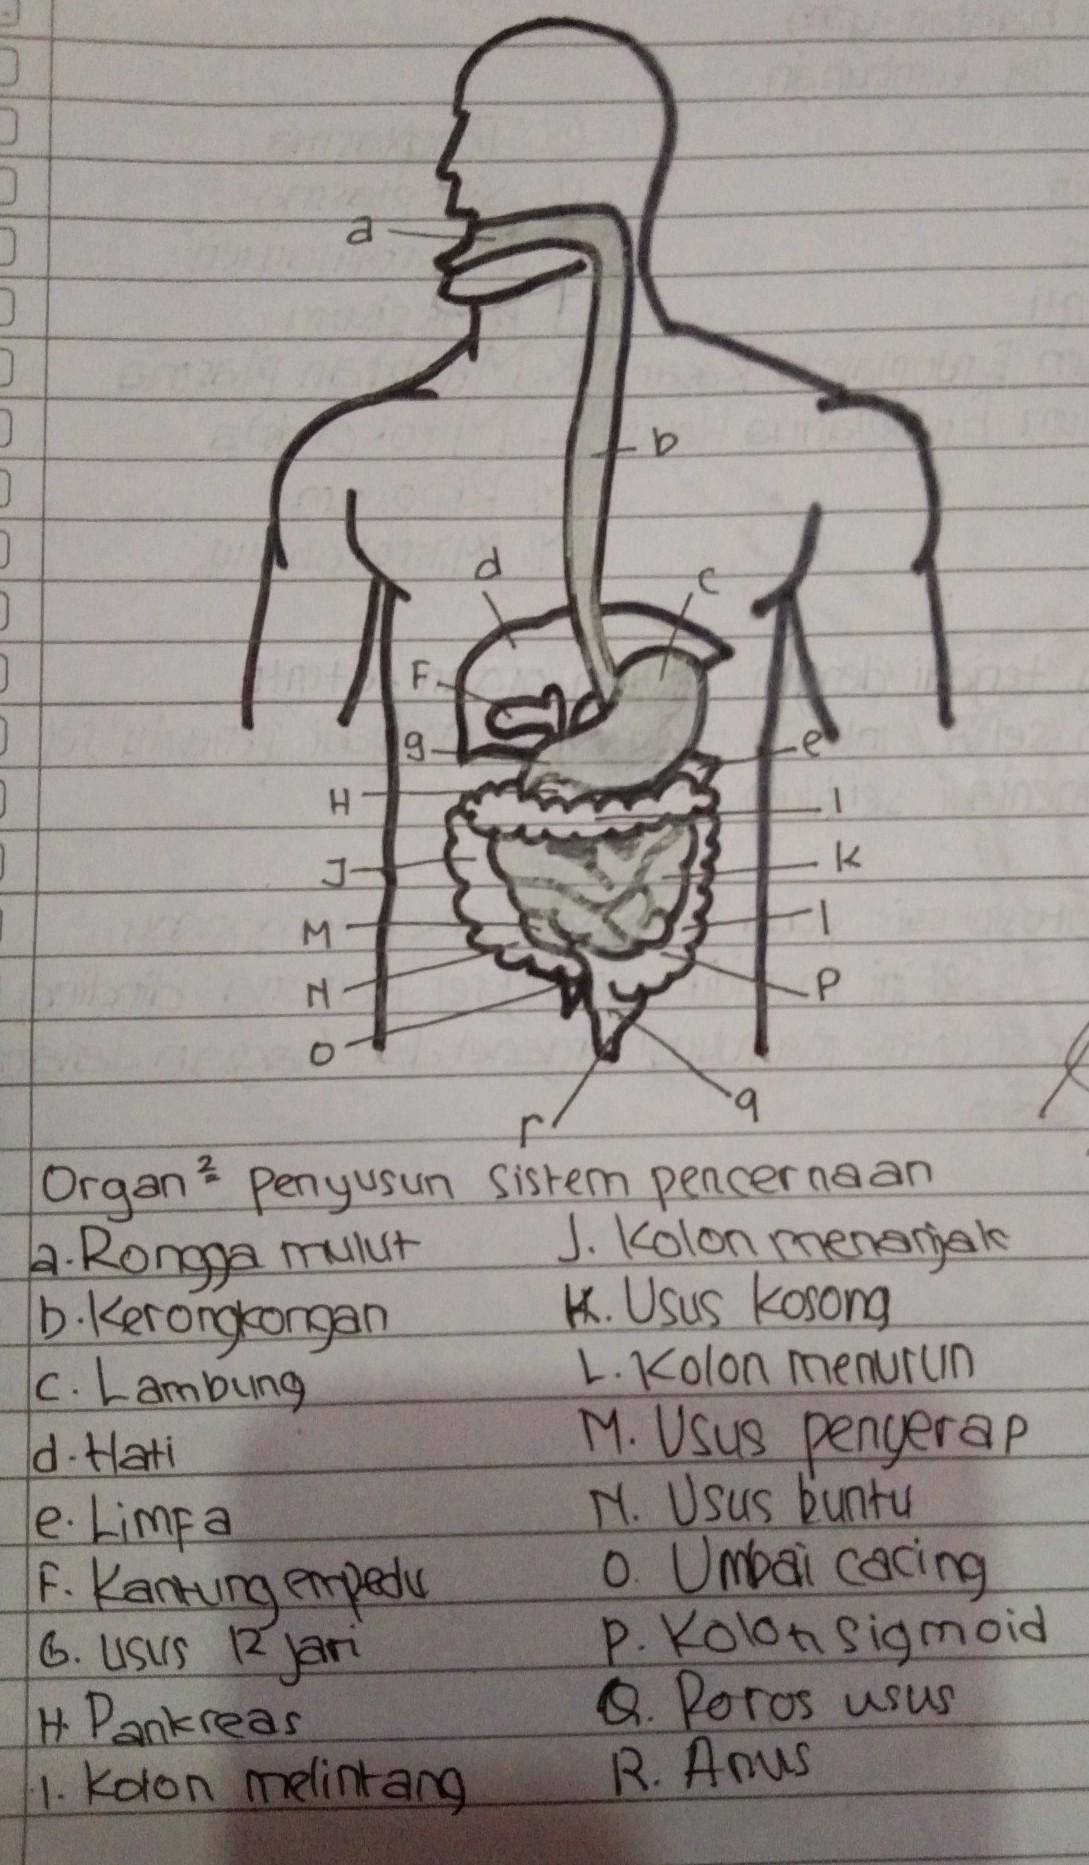 a
b
d
c
F
g
e
H
I
J
K
M
l
N
P
O
q
r
Organ² penyusun sistem pencernaan
a. Rongga mulut
b. Kerongkongan
c. Lambung
d. Hati
e. Limfa
F. Kantung empedu
G. usus 12 jari
H. Pankreas
I. Kolon melintang
J. Kolon menanjak
K. Usus kosong
L. Kolon menurun
M. Usus penyerap
N. Usus buntu
O. Umbai cacing
P. Kolon sigmoid
Q. Poros usus
R. Anus